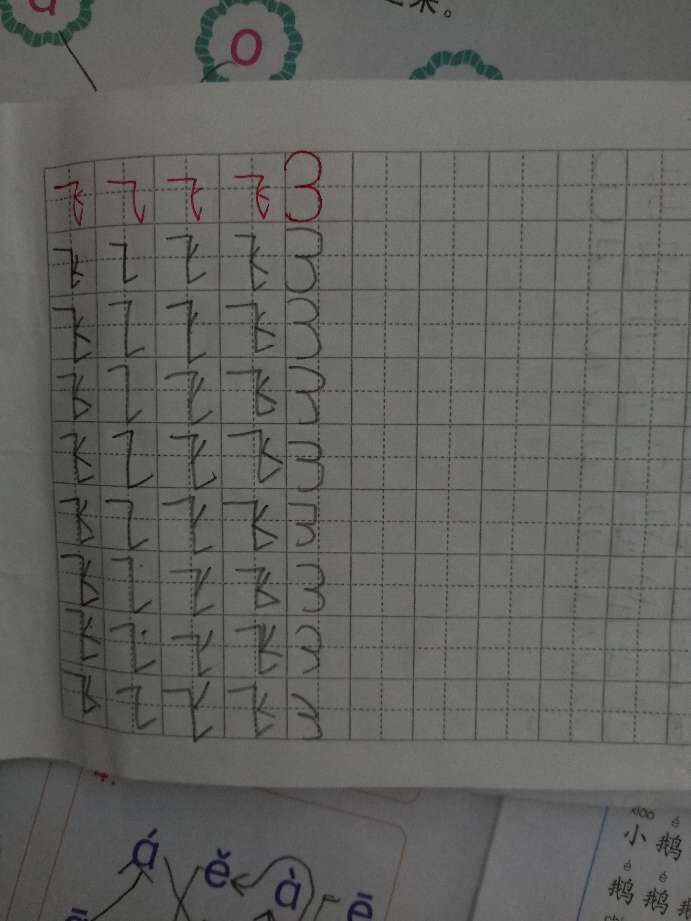 a 来。
o
飞 乁 飞 飞 3
飞 乁 飞 飞 3
飞 乁 飞 飞 3
飞 乁 飞 飞 3
飞 乁 飞 飞 3
飞 乁 飞 飞 3
飞 乁 飞 飞 3
飞 乁 飞 飞 3
飞 乁 飞 飞 3
xiǎo é
小 鹅
á ě à ē
é é
鹅 鹅
ē